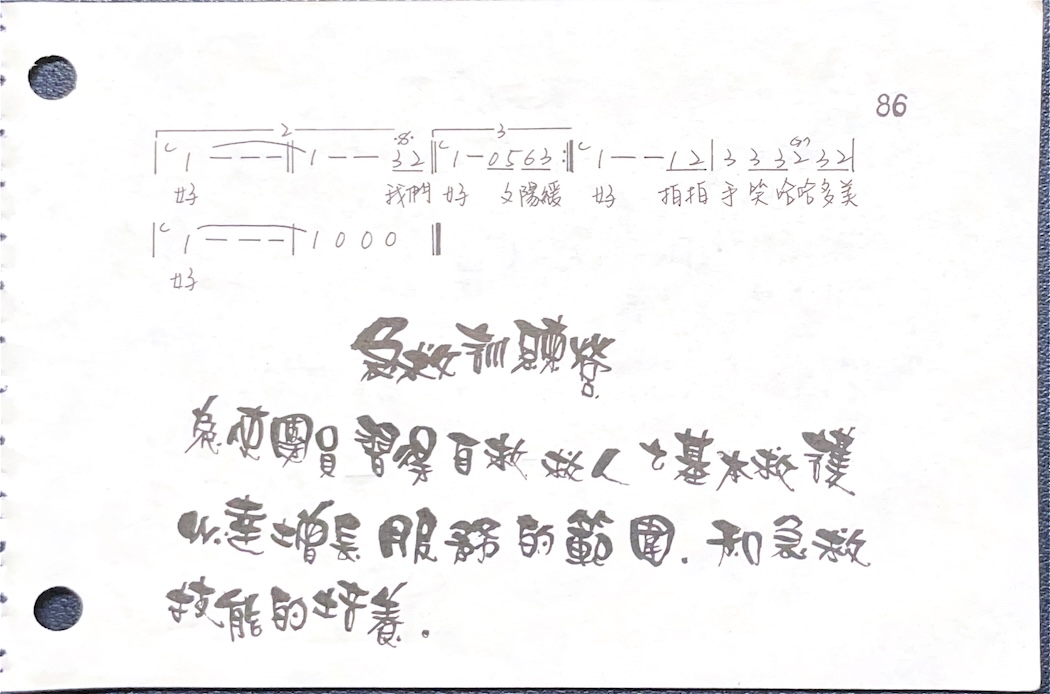 86
2 3
C 1 - - - || 1 - - 3 2 || C 1 - 0 5 6 3 :|| C 1 - - 1 2 | 3 3 3 2 3 2 |
好 我們 好 夕陽緩 好 拍拍手笑哈哈多美
| C 1 - - - | 1 0 0 0 ||
好
急救訓練營
為使團員習得自救救人之基本救護
以達增長服務的範圍.和急救
技能的培養.